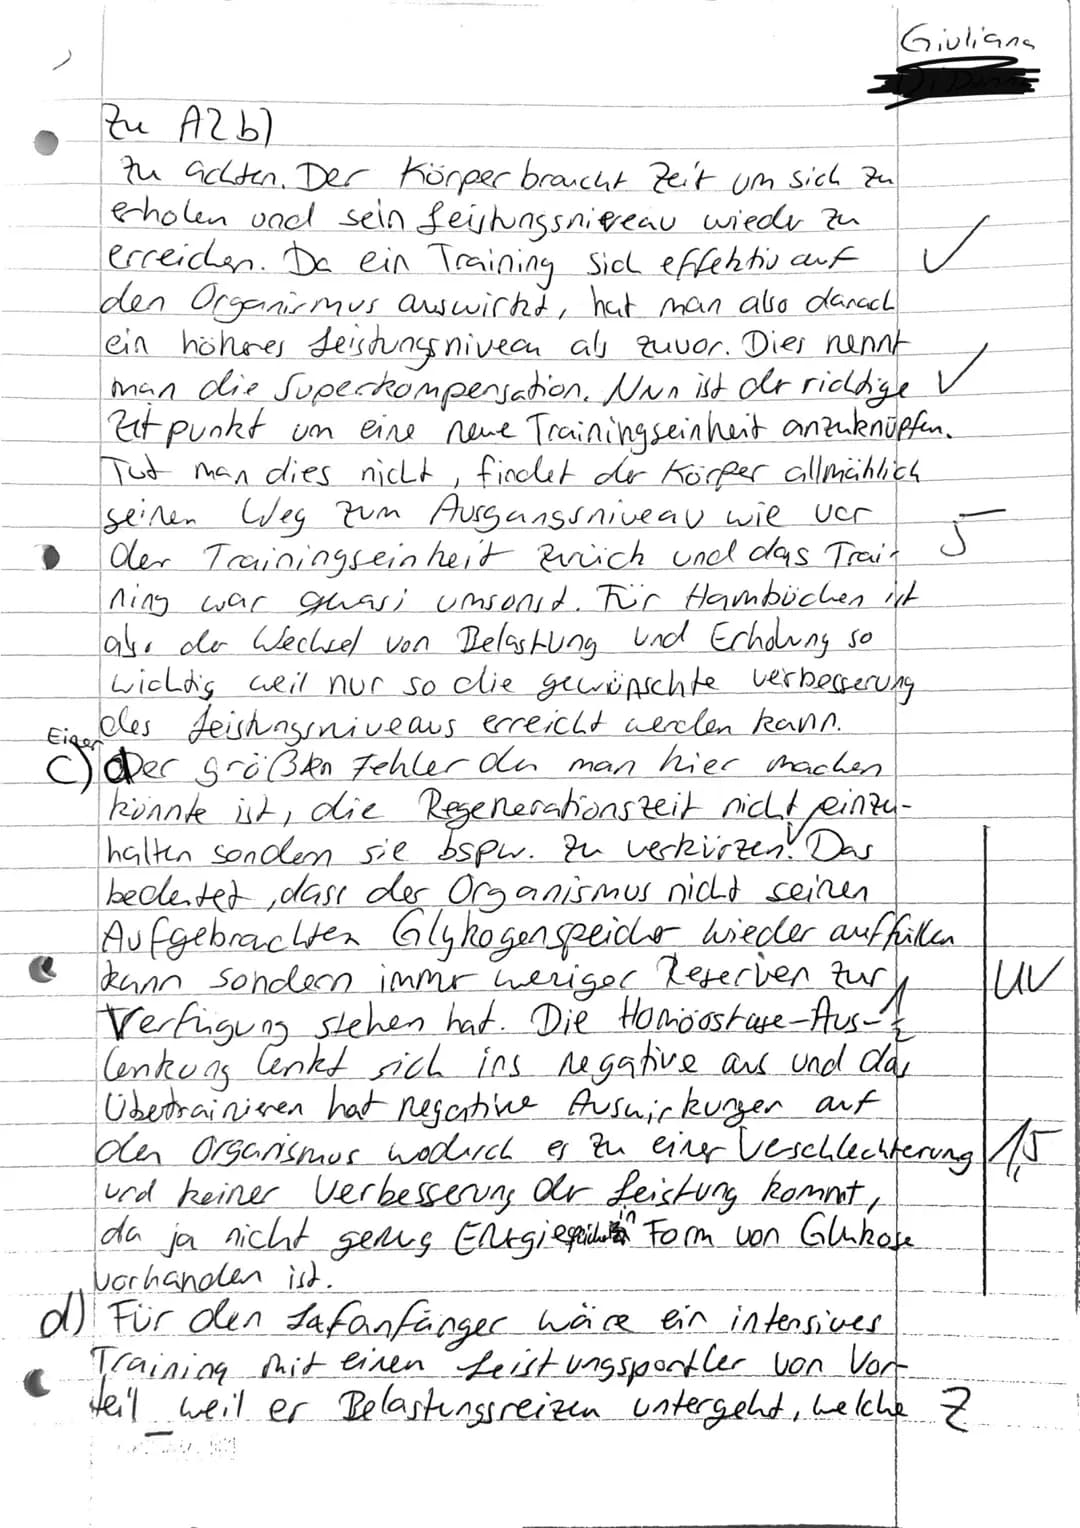 Giuliana
Zu A2 b)
zu achten. Der Körper braucht Zeit um sich zu
erholen und sein Leistungsniveau wieder zu
erreichen. Da ein Training sich effektiv auf
den Organismus auswirkt, hat man also danach
ein höheres Leistungsniveau als zuvor. Dies nennt
man die Superkompensation. Nun ist der richtige
Zeitpunkt um eine neue Trainingseinheit anzuknüpfen.
Tut man dies nicht, findet der Körper allmählich
seinen Weg zum Ausgangsniveau wie vor
der Trainingseinheit zurück und das Trai-
5
ning war quasi umsonst. Für Hambüchen ist
also der Wechsel von Belastung und Erholung so
wichtig weil nur so die gewünschte verbesserung
des Leistungsniveaus erreicht werden kann.
Einer
c) der größten Fehler den man hier machen
könnte ist, die Regenerationszeit nicht einzu-
halten sondern sie bspw. zu verkürzen. Das
bedeutet, dass der Organismus nicht seinen
Aufgebrachten Glykogenspeicher wieder auffüllen
kann sondern immer weniger Reserven zur
UV
Verfügung stehen hat. Die Homöostase-Aus-
lenkung lenkt sich ins negative aus und das
Übertrainieren hat negative Auswirkungen auf
den Organismus wodurch es zu einer Verschlechterung
1,5
und keiner Verbesserung der Leistung kommt,
da ja nicht genug Energiespeicher in Form von Glukose
vorhanden ist.
d) Für den Lafanfänger wäre ein intensives
Training mit einen Leistungsportler von Vor-
teil weil er Belastungsreizen untergeht, welche
Z